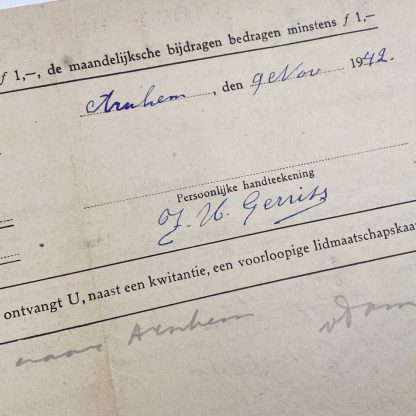 f 1,—, de maandelijksche bijdragen bedragen minstens f 1,—
Arnhem, den 9 Nov 1942.
Persoonlijke handteekening
J. H. Gerrits
ontvangt U, naast een kwitantie, een voorloopige lidmaatschapskaa
naar Arnhem